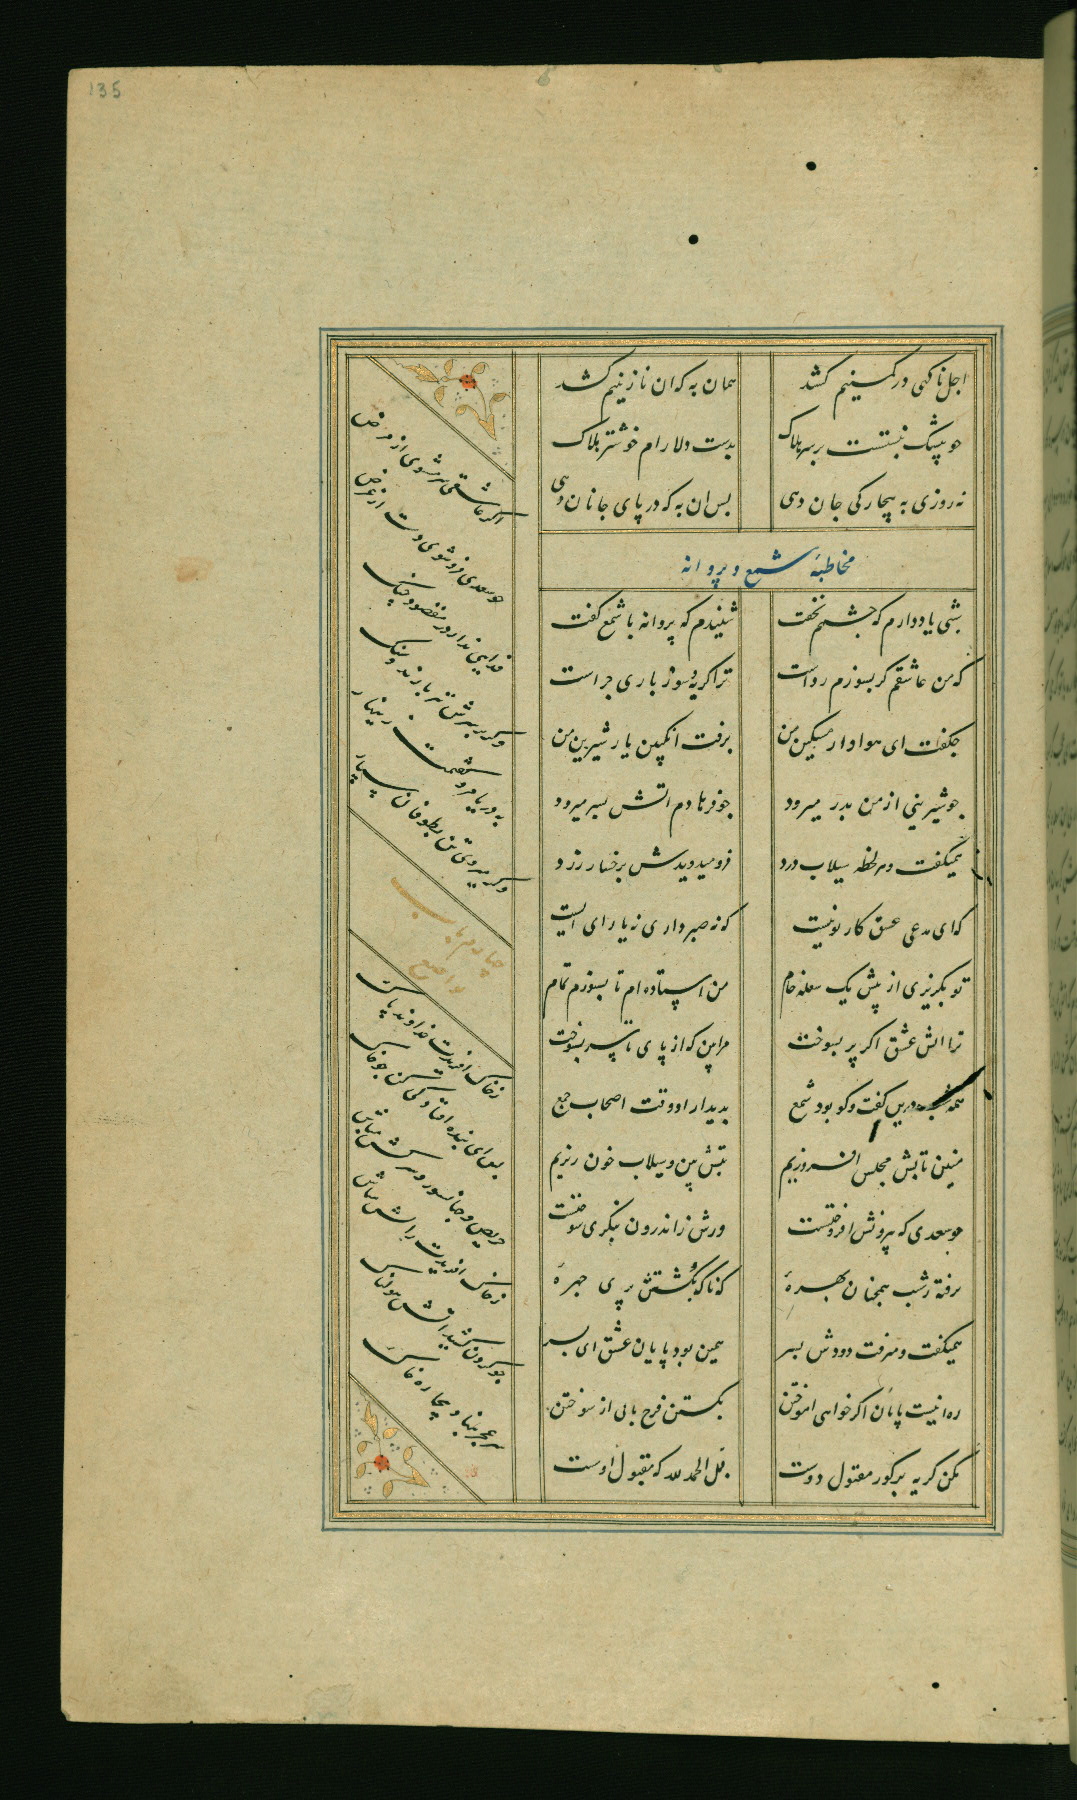 135
اجل ناکهی در کمینم کشد
همان به که ان نازنینم کشد
جو بیشک نبشتست بر سر هلاک
بدست دلارام خوشتر هلاک
نه روزی به بیچارکی جان دهی
بس ان به که در پای جانان دهی
مخاطبهٔ شمع و پروانه
شبی یاد دارم که جشمم نخفت
شنیدم که پروانه با شمع کفت
که من عاشقم کر بسوزم رواست
ترا کریه و سوز باری جراست
بکفت ای هوادار مسکین من
برفت انکبین یار شیرین من
جو شیرینی از من بدر میرود
جو فرهادم اتش بسر میرود
همیکفت و هر لحظه سیلاب درد
فرو میدویدش برخسار زرد
که ای مدعی عشق کار تو نیست
که نه صبر داری نه یارای ایست
تو بکریزی از پیش یک شعله خام
من استاده ام تا بسوزم تمام
ترا اتش عشق اکر پر بسوخت
مرا بین که از پای تا سر بسوخت
همه شب درین کفت و کو بود شمع
بدیدار او وقت اصحاب جمع
مبین تابش مجلس افروزیم
تبش بین و سیلاب خون ریزیم
جو سعدی که بیرونش افروختست
ورش ز اندرون بنکری سوختست
نرفته ز شب همجنان بهرهٔ
که ناکه بکشتش پری جهرهٔ
همیکفت و میرفت دودش بسر
همین بود پایان عشق ای بسر
ره اینست پایان اکر خواهی اموختن
بکشتن فرح یابی از سوختن
مکن کریه بر کور مقتول دوست
قل الحمد لله که مقبول اوست
اکر عاشقی سر مشوی از مرض
جو سعدی فرو شوی دست از غرض
فدایی ندارد ز مقصود چنک
وکر بر سرش تیر بارند و سنک
به دریا مرو کفتمت زینهار
وکر میروی تن بطوفان سپار
چهارم باب
تواضع
ز خاک افریدت خداوند پاک
پس ای بنده افتادکی کن جو خاک
حریص و جهانسوز و سرکش مباش
ز خاک افریدت اتش مباش
جو کردن کشید اتش هولناک
به عجز بنهاد بیچاره خاک